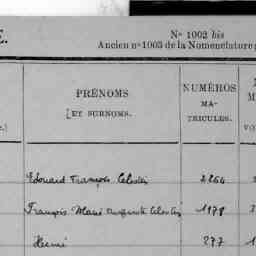 E.
N° 1002 bis
Ancien n° 1003 de la Nomenclature
PRÉNOMS
[ET SURNOMS.
NUMÉROS
MA-
TRICULES.
Edouard François Célestin 2264
François Marie Auguste Célestin 1178
Henri 277